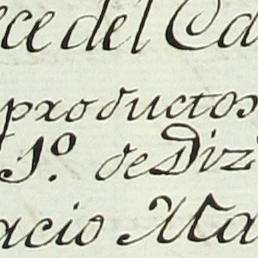 ece del Ca
productos
1º. de Diz
acio Ma